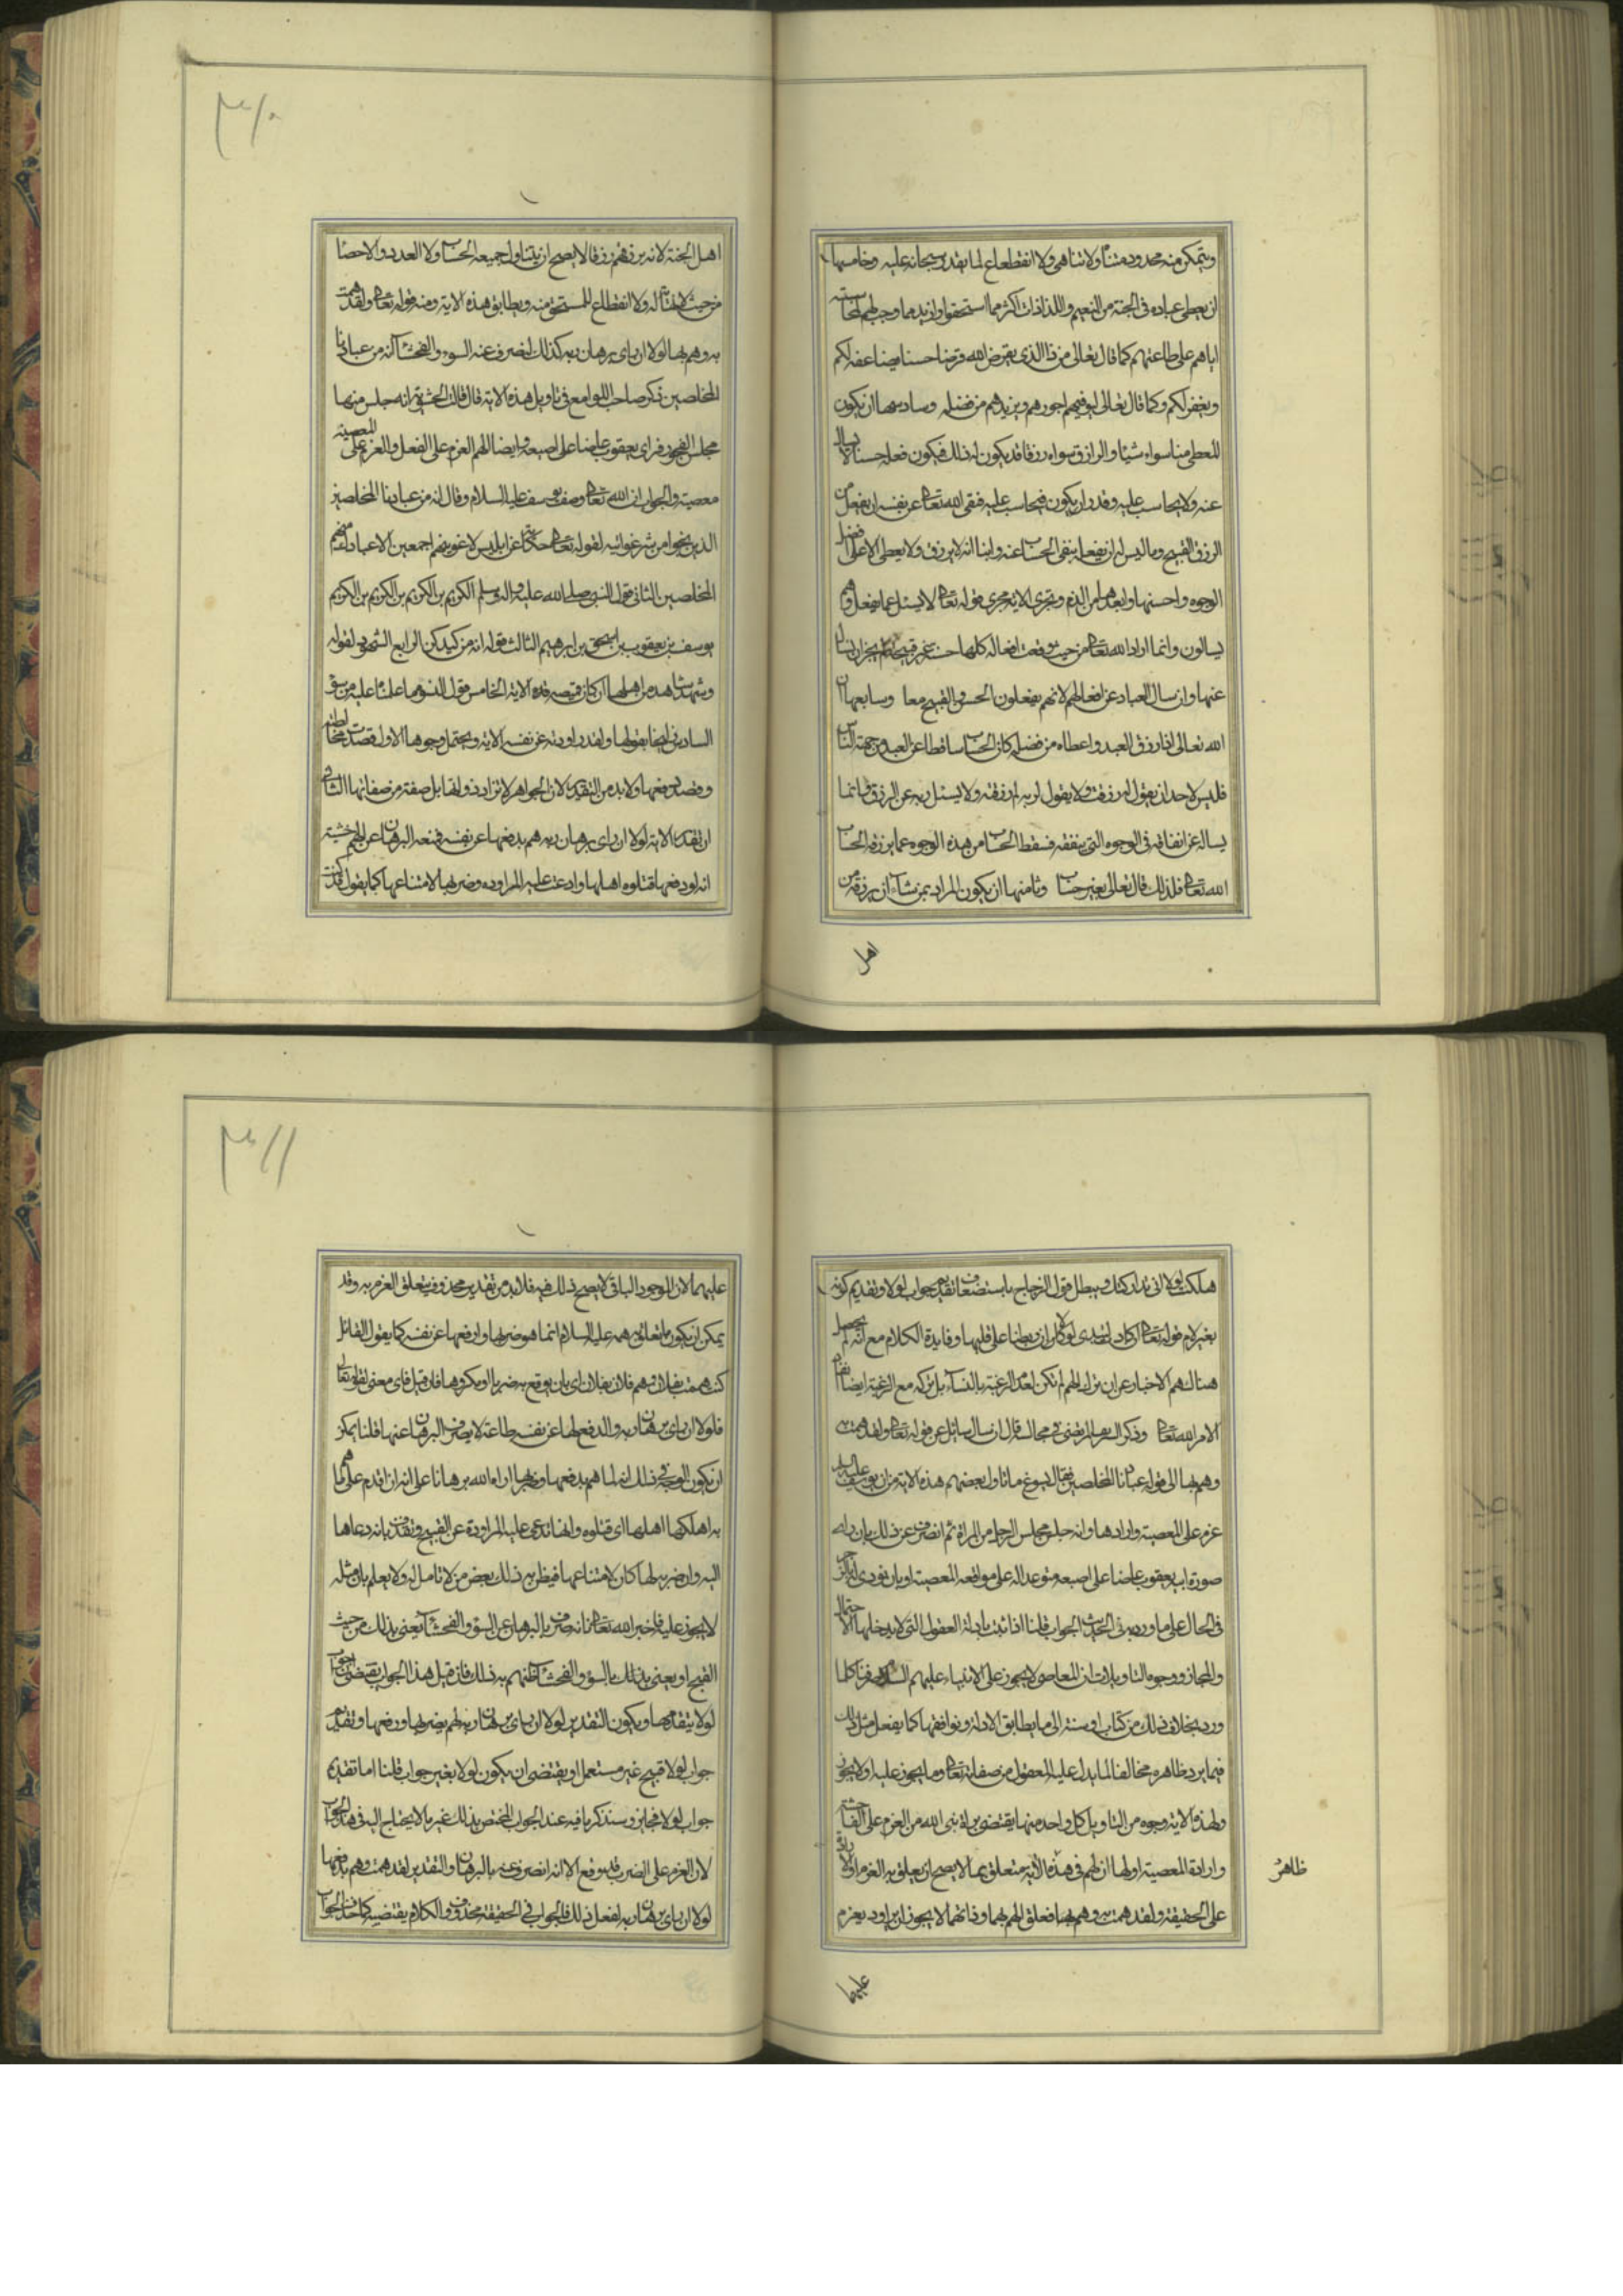 ويتمكن منه محدود متناه ولا تناهي ولا انقطاع لما يقدر سبحانه عليه وخامسها
ان يعطي عباده في الجنة من النعيم واللذات اكثر مما استحقوا وازيد مما وجب لهم
اياهم على طاعتهم كما قال تعالى من ذا الذي يقرض الله قرضا حسنا يضاعفه لكم
ويغفر لكم وكما قال تعالى ليوفيهم اجورهم ويزيدهم من فضله وسادسها ان يكون
المعطي منا سواه شيئا والرازق سواه رزقا قد يكون له ذلك فيكون فعله حسنا لا يسال
عنه ولا يحاسب عليه وقد لا يكون فيحاسب عليه فنفى الله تعالى عن نفسه ان يفعل من
الرزق القبيح وما ليس له ان يفعله بنفي الحساب عنه وابنا انه لا يرزق ولا يعطي الا على افضل
الوجوه واحسنها وابعدها من الذم وتجري الاية مجرى قوله تعالى لا يسئل عما يفعل وهم
يسالون وانما اراد الله تعالى من حيث وقعت افعاله كلها حسنة غير قبيحة لم يجز ان يسال
عنها وان سال العباد عن افعالهم لانهم يفعلون الحسن والقبيح معا وسابعها ان
الله تعالى اذا رزق العبد واعطاه من فضله كان الحساب ساقطا عن العبد من جهة الناس
فليس لاحد ان يقول له لم رزقت ولا يقول لربه لم رزقته ولا يسئل ربه عن الرزق وانما
يساله عن انفاقه في الوجوه التي ينفقه فسقط الحساب من هذه الوجوه عما يرزقه الحساب
الله تعالى فلذلك قال تعالى بغير حساب وثامنها ان يكون المراد بمن يشاء ان يرزقه من
اهل
٣١٠
اهل الجنة لانه يرزقهم رزقا لا يصح ان يتناول جميعه الحساب ولا العدد والاحصا
من حيث لا نهاية له ولا انقطاع للمستحق منه ويطابق هذه الاية ومنه قوله تعالى ولقد همت
به وهم بها لولا ان راى برهان ربه كذلك لنصرف عنه السوء والفحشاء انه من عبادنا
المخلصين ذكر صاحب اللوامع في تاويل هذه الاية قال قالت الحشوية انه جلس منها
مجلس الفجور فراى يعقوب عاضا على اصبعه وايضا الهم العزم على الفعل والعزم على المعصية
معصية والجواب ان الله تعالى وصف يوسف عليه السلام وقال انه من عبادنا المخلصين
الذين نجوا من شر غوائيه لقوله تعالى حكاية عن ابليس لاغوينهم اجمعين الا عبادك منهم
المخلصين الثاني قول النبي صلى الله عليه واله وسلم الكريم بن الكريم بن الكريم بن الكريم
يوسف بن يعقوب بن اسحق بن ابرهيم الثالث قوله انه من كيدكن الرابع الشهود لقوله
وشهد شاهد من اهلها ان كان قميصه قد الاية الخامس قول النسوة ما علمنا عليه من سوء
السادس ايضا بقولها ولقد راودته عن نفسه الاية ويحتمل وجوها الاول قصدت مخالطته
وقصد دفعها ولا بد من التقدير لان الجواهر لا تراد ذواتها بل صفة من صفاتها الثاني
ان تقدير الاية لولا ان راى برهان ربه هم بدفعها عن نفسه فمنعه البرهان عن الهم خشية
انه لو دفعها قتلوه اهلها وادعت عليه المراوده وضربها لامتناعها كما يقول قد كنت
هلكت لولا اني تداركتك ويبطل قول الزجاج باستضعاف تقديم جواب لولا وتقديم كونه
بغير لام قوله تعالى ان كادت لتبدي به لولا ان ربطنا على قلبها وفايدة الكلام مع انه لم يحصل
هناك هم الاخبار عن ان ترك الهم لم تكن لعدم الرغبة بالنساء بل تركه مع الرغبة ايضا نقاد
لامر الله تعالى وذكر السيد المرتضى في مجالسه قال ان سال سائل عن قوله تعالى ولقد همت به
وهم بها الى قوله عبادنا المخلصين فقال ايسوغ ما تاول بعضهم هذه الاية من ان يوسف عليه السلام
عزم على المعصية وارادها وانه جلس مجلس الرجل من المراة ثم انصرف عن ذلك بان راى
صورة ابيه يعقوب عاضا على اصبعه متوعدا له على مواقعه المعصية او بان نودي
في الحال على ما ورد في الحديث الجواب قلنا اذا ثبت بادلة العقول التي لا يدخلها الاحتمال
والمجاز ووجوه التاويلات ان المعاصي لا يجوز على الانبياء عليهم السلم صرفنا كلما
ورد بخلاف ذلك من كتاب او سنة الى ما يطابق الادلة ويوافقها كما يفعل مثل ذلك
فيما يرد ظاهره مخالفا لما يدل عليه العقول من صفاته تعالى وما يجوز عليه او لا يجوز
ولهذه الاية وجوه من التاويل كل واحد منها يقتضي براءة نبي الله من العزم على الفاحشة
وارادة المعصية اولها ان الهم في هذه الاية متعلق بما لا يصح ان يعلق به العزم او الارادة
على الحقيقة ولقد همت به وهم بها فعلق الهم بهما وذاتهما لا يجوز ان يراد ويعزم
ظاهر
عليهما
٣١١
عليهما لان الموجود الباقي لا يصح ذلك فيه فلا بد من تقدير محذوف يتعلق العزم به وقد
يمكن ان يكون ما تعلق به همه عليه السلام انما هو ضربها او دفعها عن نفسه كما يقول القائل
كنت هممت بفلان وهم فلان بفلان اي بان يوقع به ضربا او مكروها فان قيل فاي معنى لقوله تعالى
فلولا ان راى برهان ربه والدفع لها عن نفسه طاعة لا يصرف البرهان عنها قلنا يمكن
ان يكون الوجه في ذلك انه لما هم بدفعها وضربها اراه الله برهانا على انه ان اقدم على ما هم
به اهلكها اهلها اي قتلوه وانها تدعي عليه المراودة عن القبيح وتقذفه بانه دعاها
اليه وان ضربه لها كان لامتناعها فيظن به ذلك بعض من لا تامل له ولا يعلم بان مثله
لا يجوز عليه فاخبر الله تعالى بانه صرف بالبرهان عن السوء والفحشاء يعني بذلك من حيث
القبيح او يعني بذلك بالسوء والفحشاء ظنهم به ذلك فان قيل هذا الجواب يقتضي ان جواب
لولا يتقدمها ويكون التقدير لولا ان راى برهان ربه لهم بضربها ودفعها وتقديم
جواب لولا قبيح غير مستعمل او يقتضي ان يكون لولا بغير جواب قلنا اما تقديم
جواب لولا فجايز وسنذكر ما فيه عند الجواب المختص بذلك غير ما لا يحتاج اليه في هذا الجواب
لان العزم على الضرب قد وقع الا انه انصرف عنه بالبرهان والتقدير لقد همت وهم بدفعها
لولا ان راى برهان ربه لفعل ذلك فالجواب في الحقيقة محذوف والكلام يقتضيه كما حذف الجواب